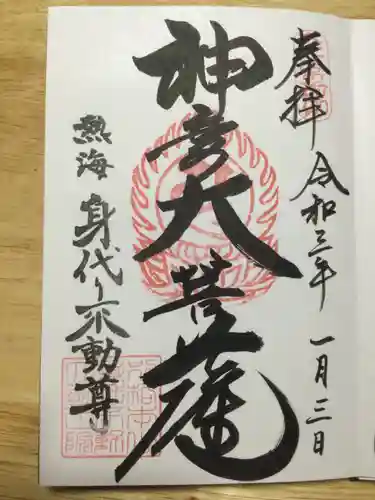 奉拝
令和三年 一月三日
神変大菩薩
熱海 身代り不動尊